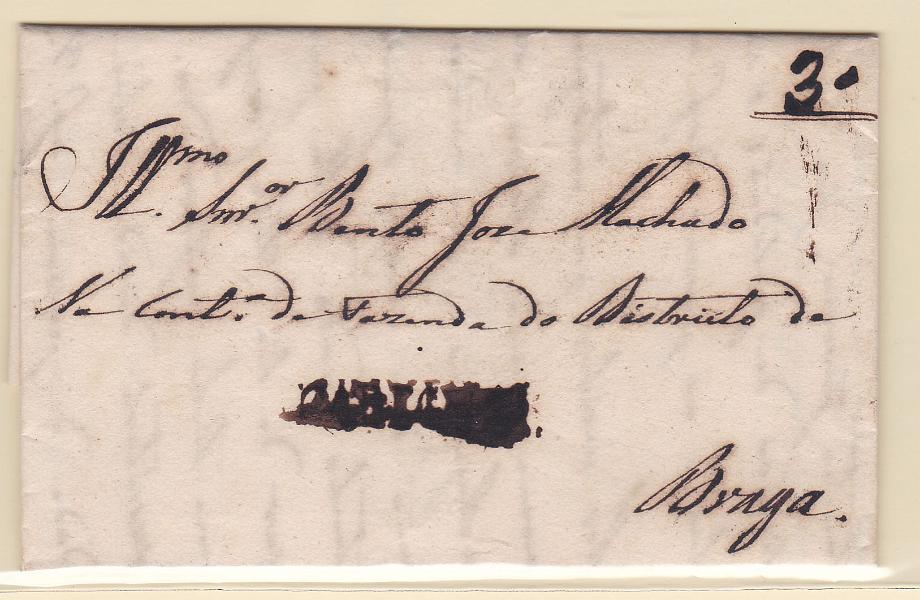 30
Illmo Snr.or Bento Joze Machado
Na Cont.a da Fazenda do Districto de
Braga.